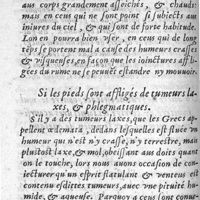 aux corps grandement asseichés, & chauds:
mais en ceux qui ne sont point si subiects aux
iniures du ciel, & qui sont de forte habitude.
Lon en pourra bien vser, en ceux qui de long
tẽps se portent mal a cause des humeurs crasses
& visqueuses, en façon que les ioinctures affli-
gées du rume ne se peuuẽt estandre ny mouuoir.
Si les pieds sont affligés de tumeurs la-
xes, & phlegmatiques.
S'il y a des tumeurs laxes, que les Grecs ap-
pellent œdemata, dedans lesquelles est fluué vn
humeur qui n'est ny crasse, ny terrestre, mau
plustost laxe, & mol, obeissant aux doits quant
on le touche, lors nous auons occasion de con-
iecturer qu'un esprit flatulant & venteus est
contenu esdittes tumeurs, auec vne pituité hu-
mide, & aqueuse. Parquoy a ceux sont conue-